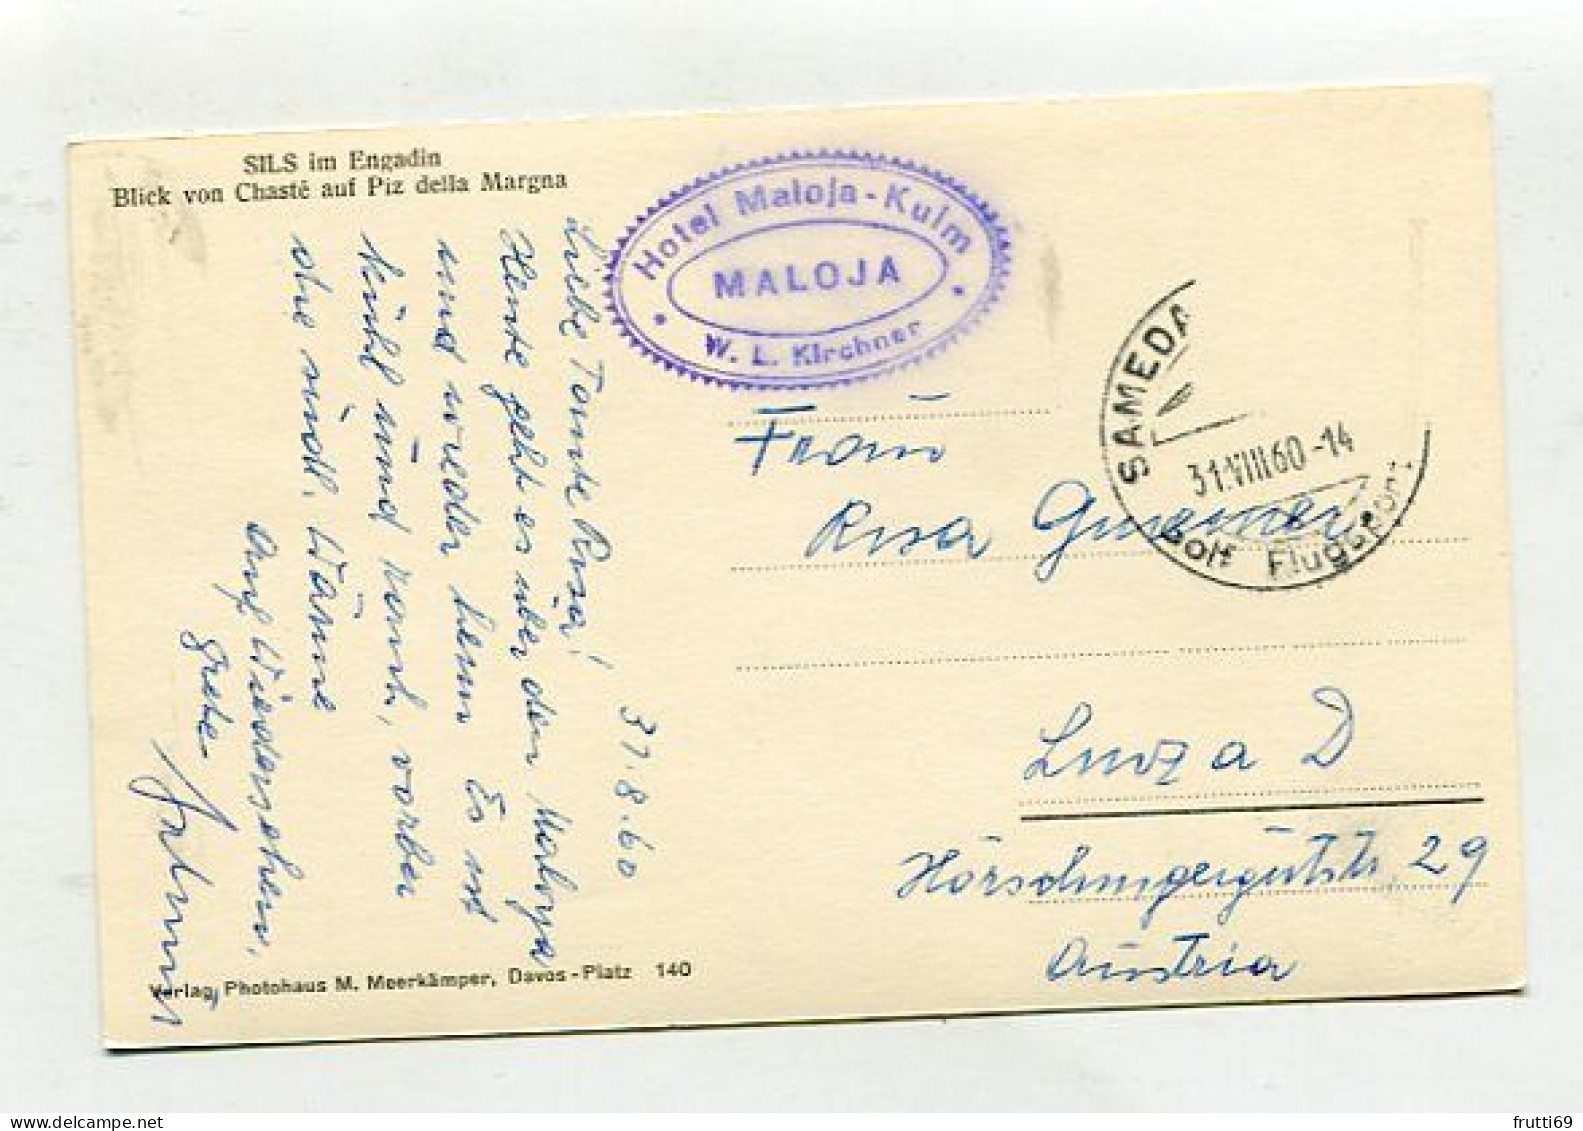 SILS im Engadin
Blick von Chasté auf Piz della Margna
Hotel Maloja-Kulm
MALOJA
W. L. Kirchner
SAMEDA
31.VIII 60-14
Golf Flugsport
31.8.60
Liebe Tante Rosa!
Heute geht es über den Maloja
und wieder heim. Es ist
kühl und vorbei
die südl. Wärme
Auf Wiedersehen,
Grete
Frau
Rosa
Linz a D
Hörschingergutstr. 29
Austria
Verlag Photohaus M. Meerkämper, Davos-Platz 140
frutti69
www.delcampe.net